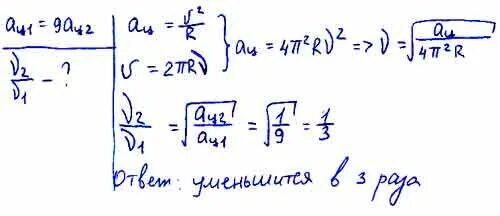 aц1 = 9aц2
ν2/ν1 - ?
aц = υ²/R
υ = 2πRν
} aц = 4π²Rν² => ν = √(aц/4π²R)
ν2/ν1 = √(aц2/aц1) = √(1/9) = 1/3
Ответ: уменьшится в 3 раза